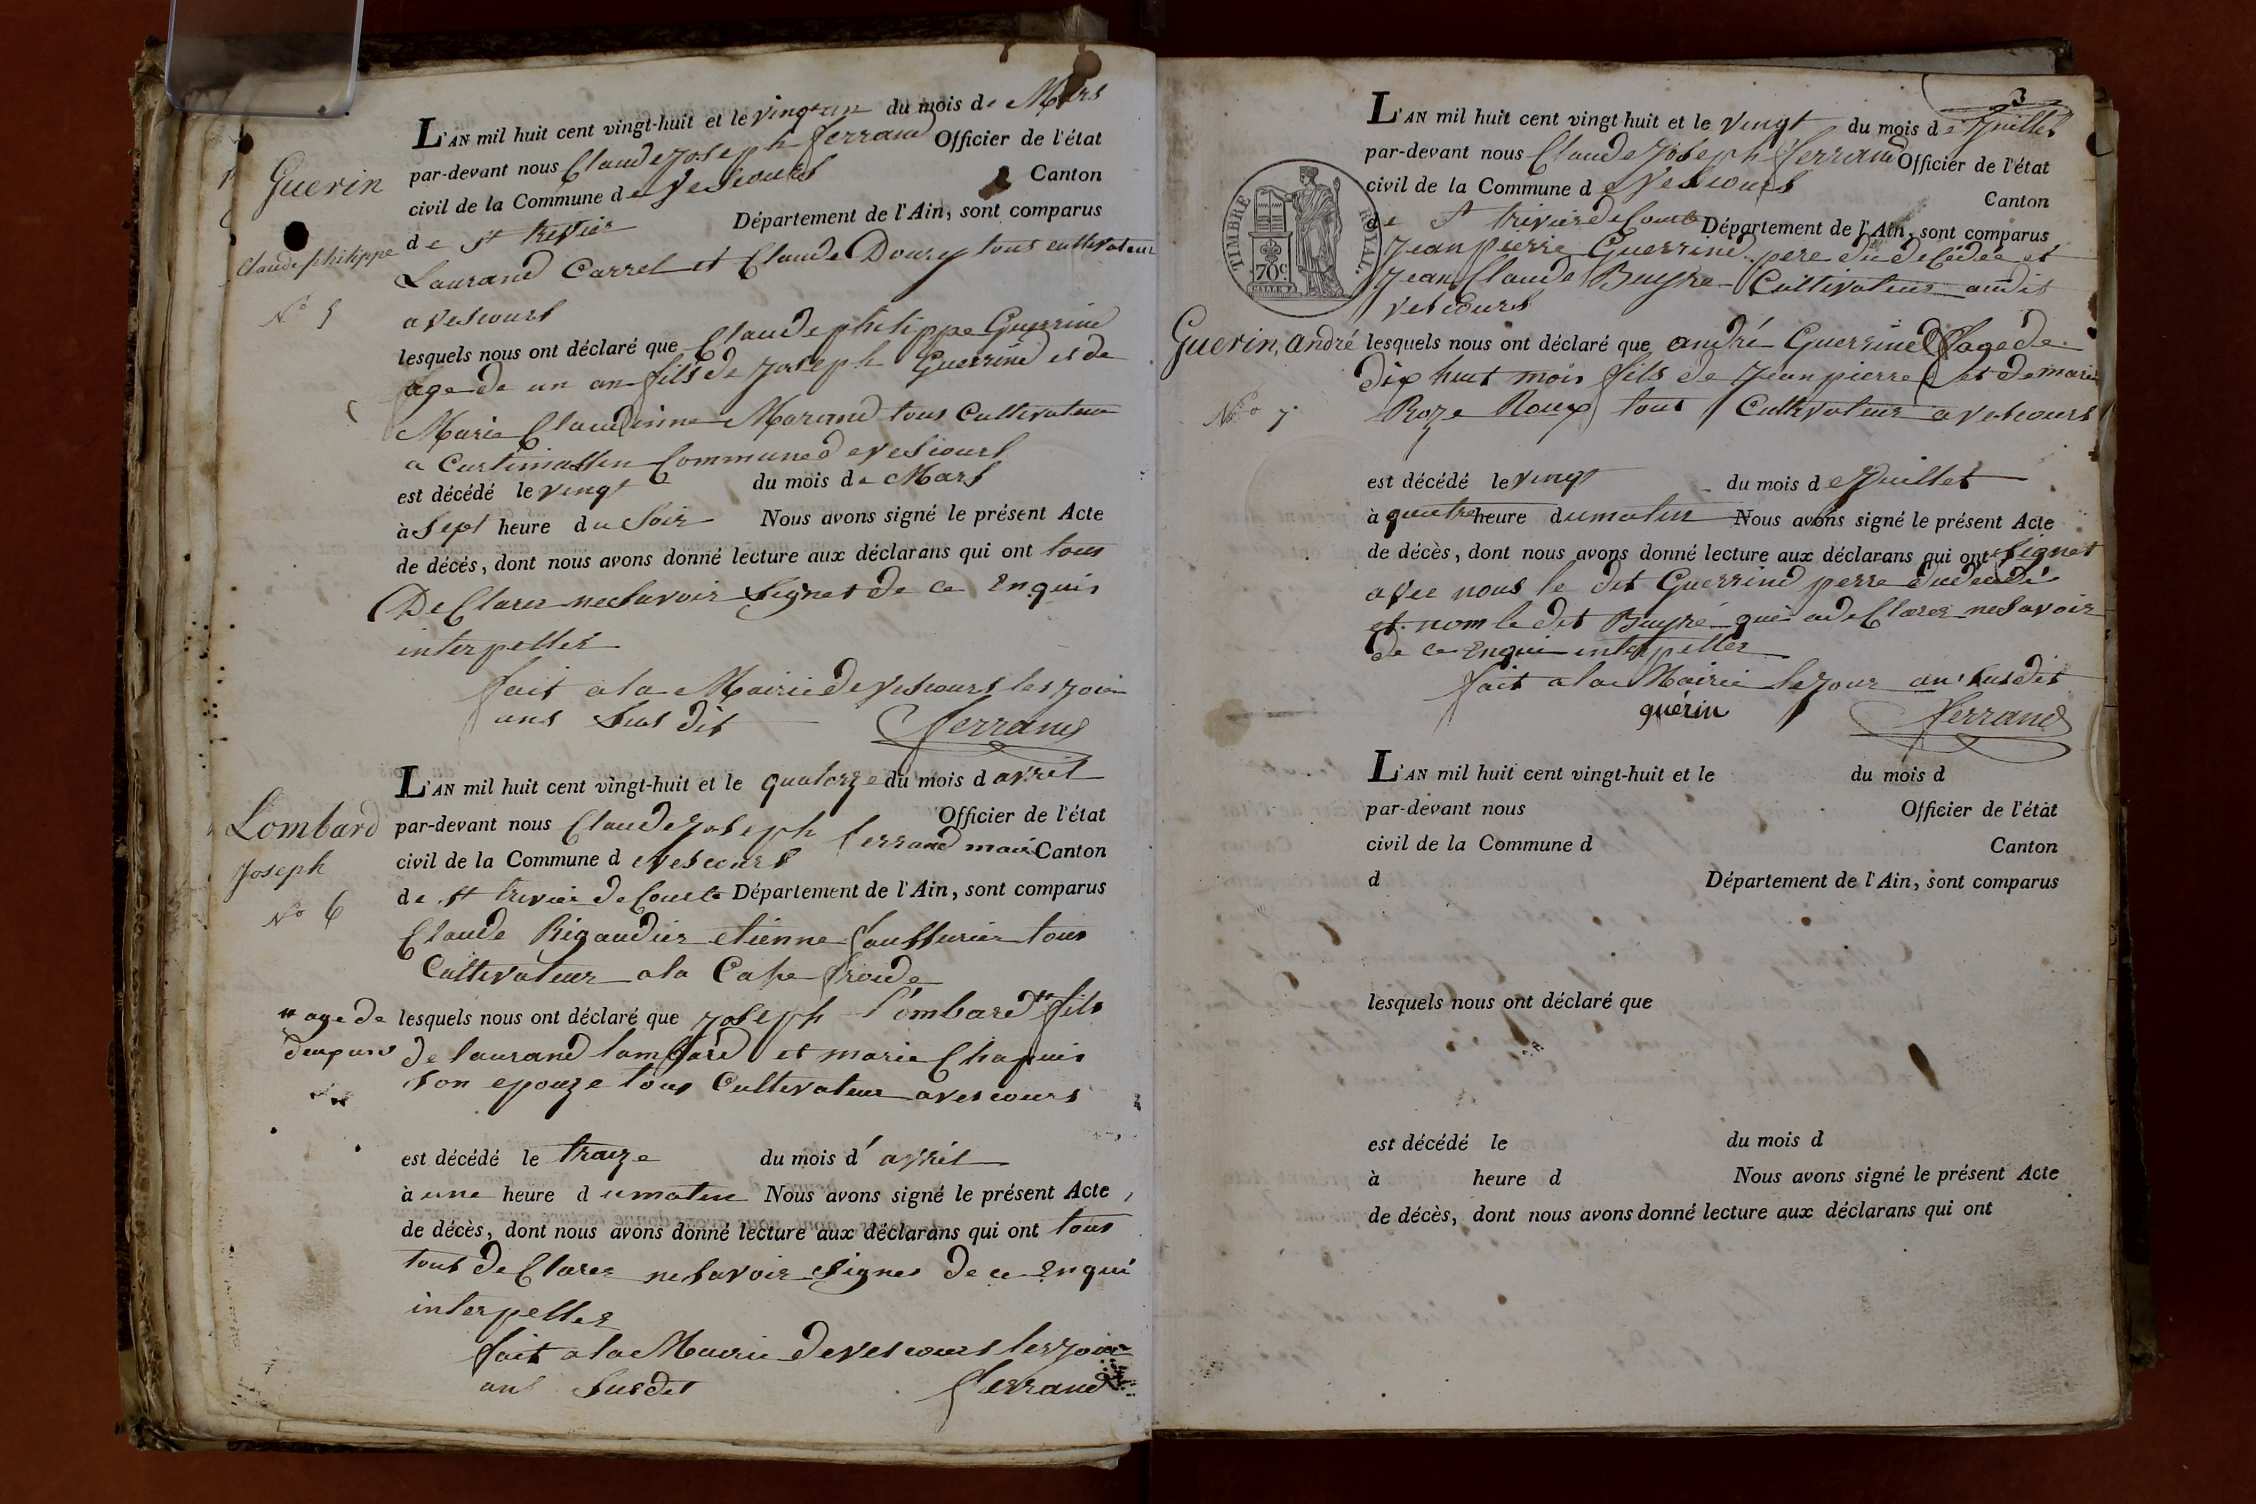 Guerin
Claude philippe
N° 5
L'AN mil huit cent vingt-huit et le vingt un du mois de Mars
par-devant nous Claude Joseph ferrand Officier de l'état
civil de la Commune de Vescours Canton
de St trivier Département de l'Ain, sont comparus
Laurand Carrel et Claude Doury tout cultivateur
a vescours
lesquels nous ont déclaré que Claude philippe Guerrind
age de un an fils de Joseph Guerrind et de
Marie Claudinne Morand tous Cultivateur
a Curtimallin Commune de vescours
est décédé le vingt du mois de Mars
à Sept heure du Soir Nous avons signé le présent Acte
de décès, dont nous avons donné lecture aux déclarans qui ont tous
De Clarer ne Savoir Signer de ce Enquis
interpeller
fait a la Mairie de vescours les jour
ans Sus dit
ferrand
Lombard
Joseph
N° 6
L'AN mil huit cent vingt-huit et le quatorze du mois d avril
par-devant nous Claude Joseph ferrand maire Officier de l'état
civil de la Commune de vescours Canton
de St trivier de Courte Département de l'Ain, sont comparus
Claude Rigaudier etienne Saussurier tous
Cultivateur a la Cape froide
age de
deux ans
lesquels nous ont déclaré que Joseph l'ombard fils
de laurand lombard et marie Chapuis
son epouze tous Cultivateur a vescours
est décédé le traize du mois d'avril
à une heure du matin Nous avons signé le présent Acte
de décès, dont nous avons donné lecture aux déclarans qui ont tous
tous de Clarer ne Savoir Signer de ce Enqui
interpeller
fait a la Mairie de vescours les jour
ans Susdit
ferrand
3
TIMBRE ROYAL.
70c
L'AN mil huit cent vingt-huit et le vingt du mois de Juillet
par-devant nous Claude Joseph ferrand Officier de l'état
civil de la Commune de Vescours Canton
de St trivier de Courte Département de l'Ain, sont comparus
Jean pierre Guerrind pere du décédée et
Jean Claude Buyre Cultivateur audit
vescours
Guerin, André
N° 7
lesquels nous ont déclaré que andré Guerrind age de
dix huit mois fils de Jean pierre et de marie
Roze Roux tous Cultivateur a vescours
est décédé le vingt du mois de Juillet
à quatre heure du matin Nous avons signé le présent Acte
de décès, dont nous avons donné lecture aux déclarans qui ont Signer
avec nous le dit Guerrind perre du dédé
et nom le dit Buyre qui a de Clarer ne Savoir
de ce Enqui interpeller
fait a la Mairie le jour an susdit
guérin
ferrand
L'AN mil huit cent vingt-huit et le du mois d
par-devant nous Officier de l'état
civil de la Commune d Canton
d Département de l'Ain, sont comparus
lesquels nous ont déclaré que
est décédé le du mois d
à heure d Nous avons signé le présent Acte
de décès, dont nous avons donné lecture aux déclarans qui ont